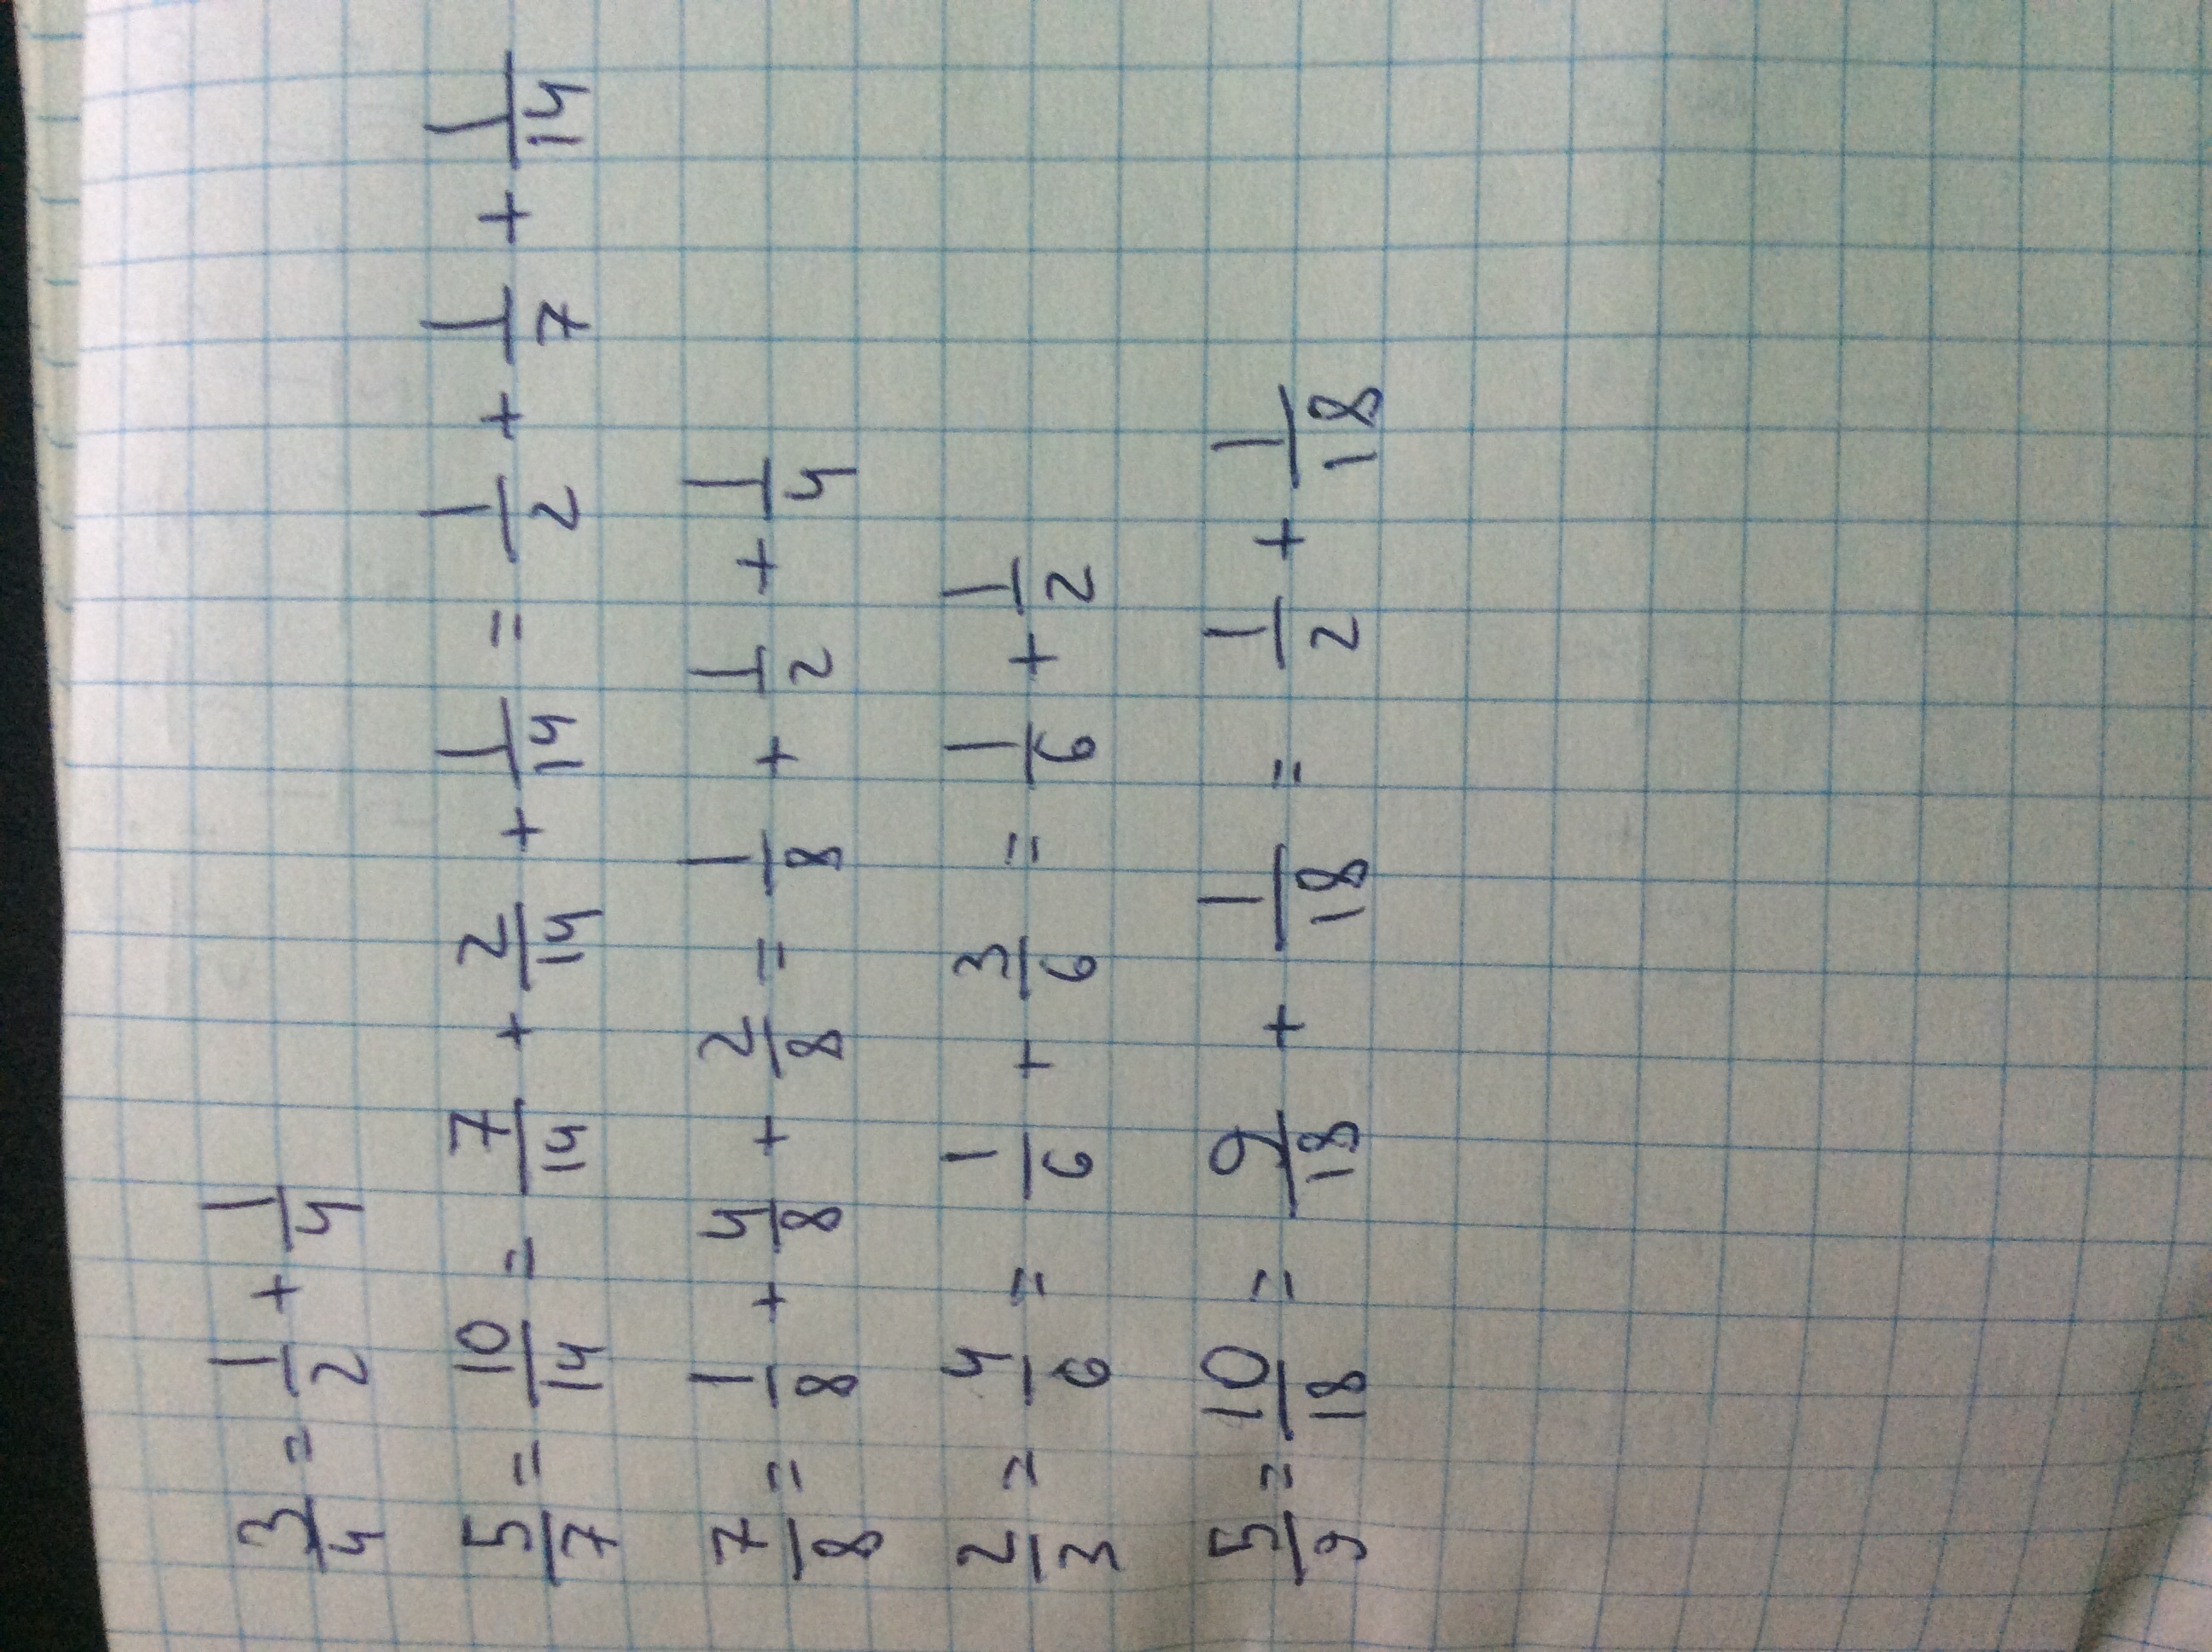 3/4 = 1/2 + 1/4
5/7 = 10/14 = 7/14 + 2/14 + 1/14 = 1/2 + 1/7 + 1/14
7/8 = 1/8 + 4/8 + 2/8 = 1/8 + 1/2 + 1/4
2/3 = 4/6 = 1/6 + 3/6 = 1/6 + 1/2
5/9 = 10/18 = 9/18 + 1/18 = 1/2 + 1/18